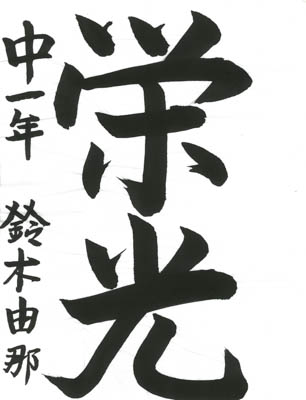 栄光
中一年 鈴木由那